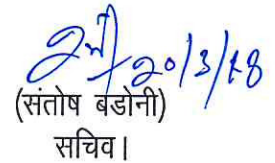 20/3/18
(संतोष बडोनी)
सचिव।